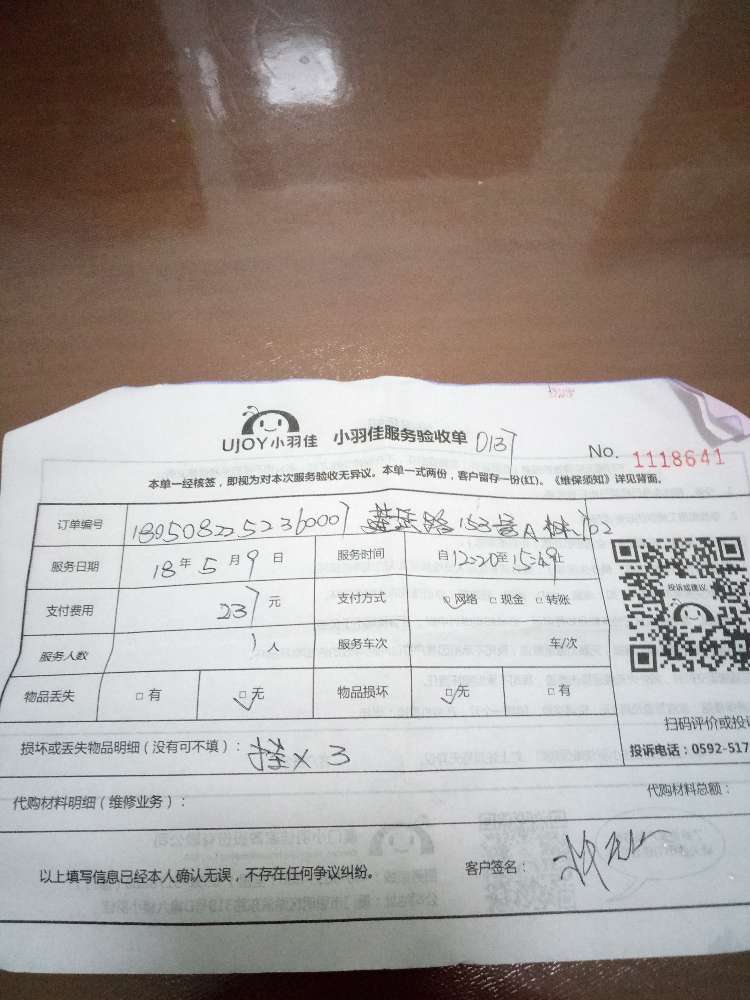 UJOY小羽佳 小羽佳服务验收单 D137
No. 1118641
本单一经核签，即视为对本次服务验收无异议。本单一式两份，客户留存一份(红)。《维保须知》详见背面。
订单编号 1805082252360007 路153号A栋702
服务日期 18年5月9日 服务时间 自12:20至15:49止
支付费用 237元 支付方式 网络 现金 转账
服务人数 1人 服务车次 车/次
投诉或建议
物品丢失 有 无 物品损坏 无 有
扫码评价或投
损坏或丢失物品明细（没有可不填）： 挂×3
投诉电话：0592-517
代购材料明细（维修业务）： 代购材料总额：
以上填写信息已经本人确认无误，不存在任何争议纠纷。 客户签名：